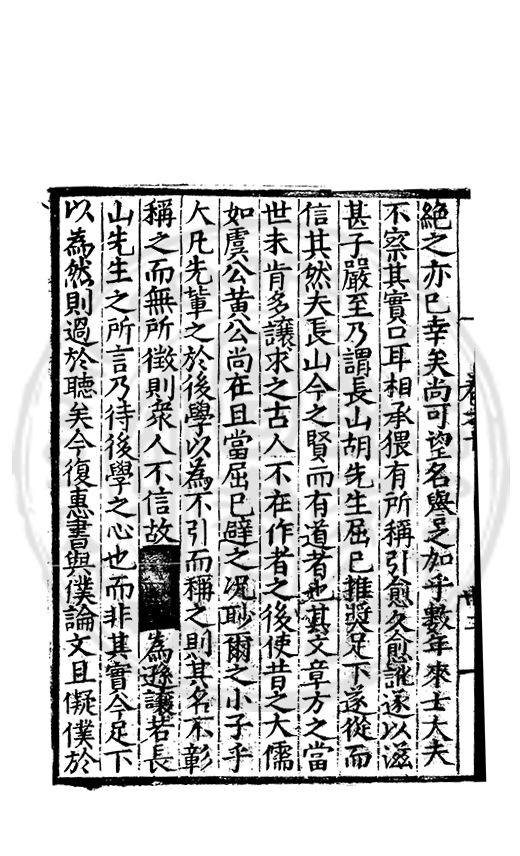 絶之亦已幸矣尚可望名譽之加乎數年來士大夫
不察其實口耳相承猥有所稱引愈久愈訛遂以滋
甚子嚴至乃謂長山胡先生屈已推奬足下遂從而
信其然夫長山今之賢而有道者也其文章方之當
世未肯多讓求之古人不在作者之後使昔之大儒
如虞公黄公尚在且當屈已避之况眇爾之小子乎
夫凡先輩之於後學以為不引而稱之則其名不彰
稱之而無所徵則衆人不信故為遜讓若長
山先生之所言乃待後學之心也而非其實今足下
以為然則過於聽矣今復惠書與僕論文且儗僕於